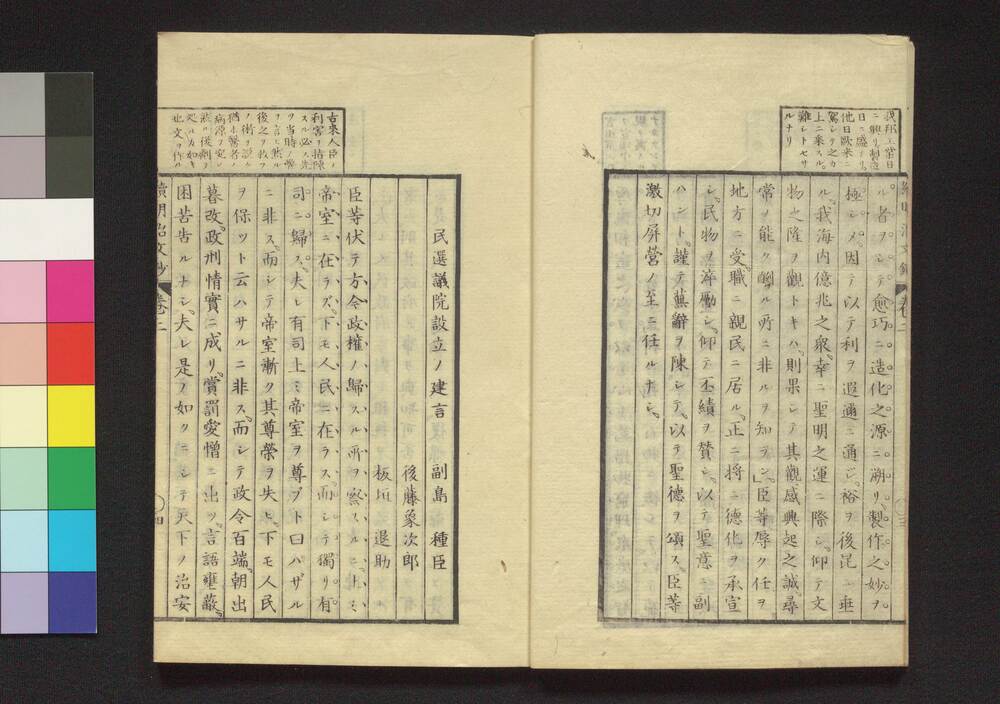 我邦工藝日
ニ興リ製造
日ニ盛ナリ
他日歐米ニ
駕シ之カ
上ニ乗スル
難シトセサ
ルナリ
ル者ヲシテ愈巧ニ造化之源ニ溯リ製作之妙ヲ
極シメ因テ以テ利ヲ遐邇ニ通シ裕ヲ後昆ニ垂
ル我海内億兆之衆幸ニ聖明之運ニ際シ仰テ文
物之隆ヲ觀トキハ則果シテ其觀感興起之誠尋
常ノ能ク酬ル所ニ非ルヲ知ラン」臣等辱ク任ヲ
地方ニ受職ニ親民ニ居ル正ニ將ニ德化ヲ承宣
シ民物ヲ淬勵シ仰テ丕績ヲ賛シ以テ聖意ニ副
ハントト謹テ蕪辭ヲ陳シテ以テ聖德ヲ頌ス臣等
激切屏營ノ至ニ任ルナシ
古來人臣ノ
利害ヲ指陳
スル必ス先
ヲ當時ノ弊
ヲ言ヒ然ル
後之ヲ救フ
ノ術ヲ説ク
猶ホ醫者ノ
病源ヲ究シ
如キ
此文ヲ作ル
民選議院設立ノ建言 副島 種臣
後藤象次郎
板垣 退助
臣等伏テ方今政權ノ歸スル所ヲ察スルニ上ミ
帝室ニ在ラズ下モ人民ニ在ラス而シテ獨リ有
司ニ歸ス夫レ有司上ミ帝室ヲ尊ブト曰ハザル
ニ非ス而シテ帝室漸ク其尊榮ヲ失ヒ下モ人民
ヲ保ツト云ハサルニ非ス而シテ政令百端朝出
暮改政刑情實ニ成リ賞罰愛憎ニ出ツ言語壅蔽
困苦告ルナシ夫レ是ノ如クニシテ天下ノ治安
續明治文鈔 卷二
四